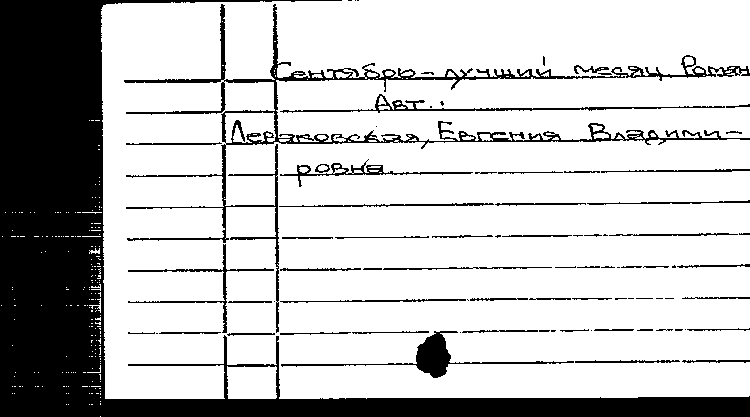 Сентябрь – лучший месяц Роман
Авт.:
Леваковская, Евгения Владими-
ровна.